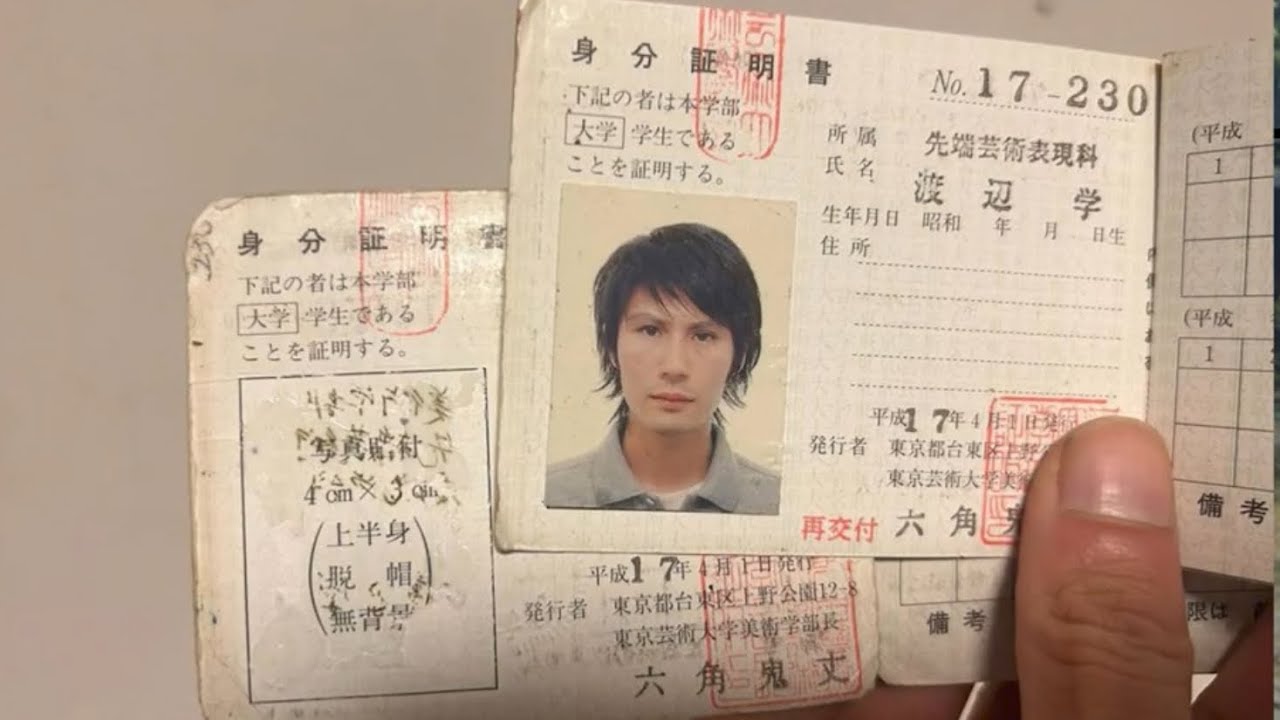 身分証明書
下記の者は本学部
大学 学生である
ことを証明する。
No. 17-230
所属 先端芸術表現科
氏名 渡辺 学
生年月日 昭和 年 月 日生
住所
平成17年4月1日発行
発行者 東京都台東区上野
東京芸術大学美術
再交付 六角鬼
(平成
1
(平成
1
備考
230
身分証明書
下記の者は本学部
大学 学生である
ことを証明する。
写真貼付
4cm×3cm
(上半身
脱帽
無背景)
平成17年4月1日発行
発行者 東京都台東区上野公園12-8
東京芸術大学美術学部長
六角鬼丈
備考
限は